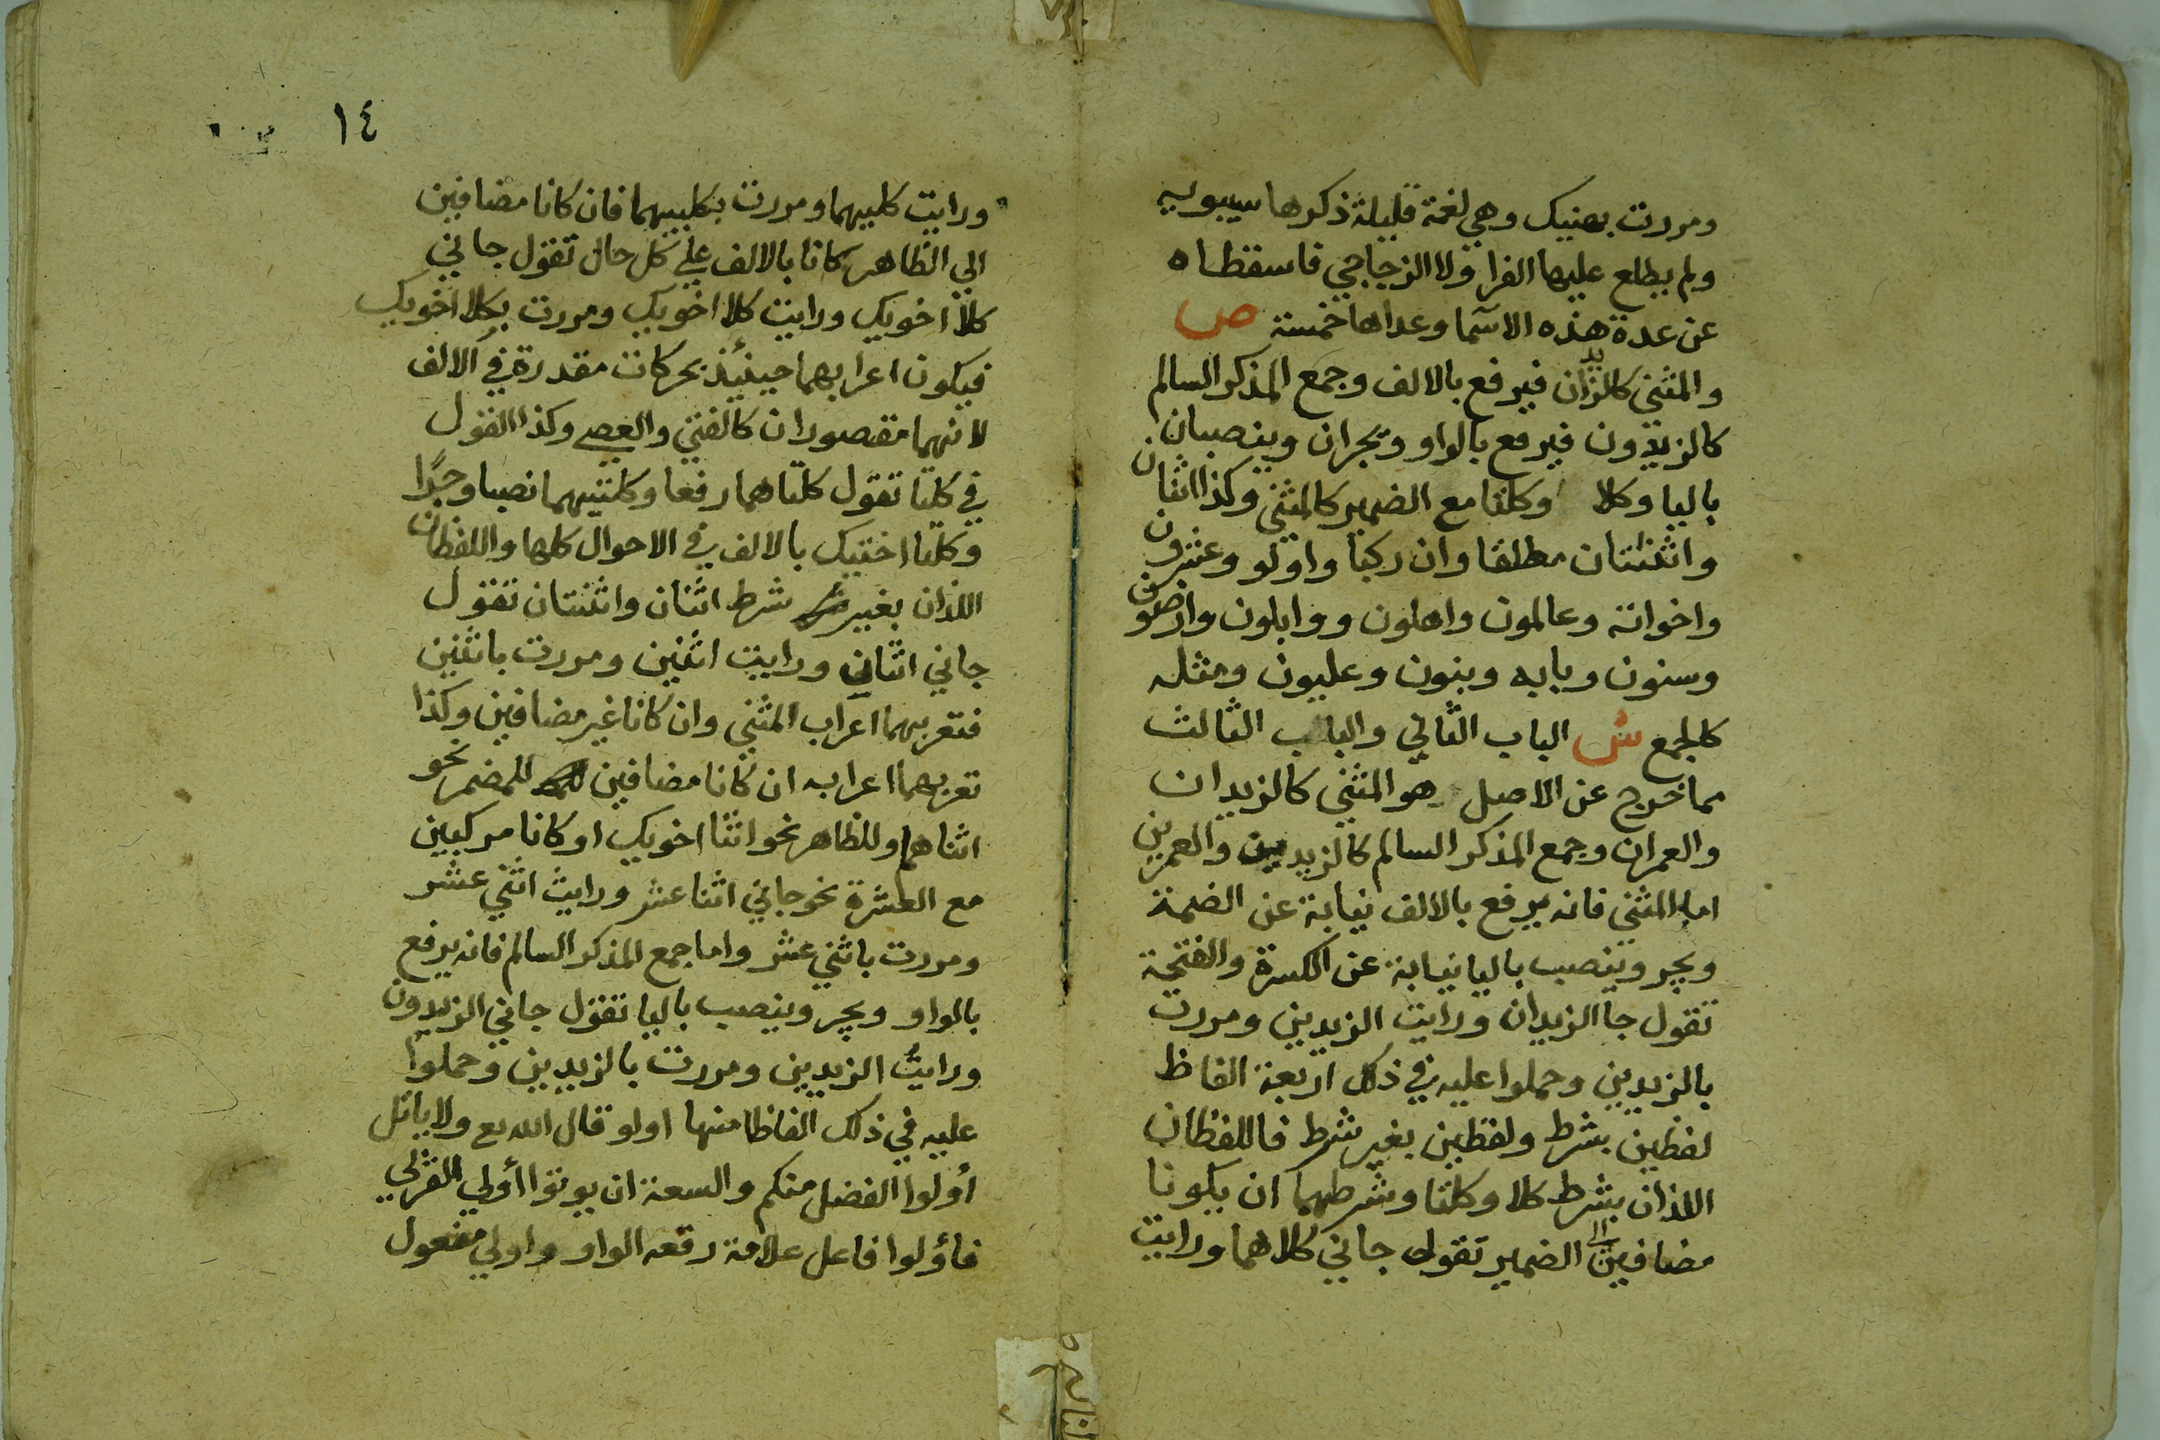 ومررت بهنيك وهي لغة قليلة ذكرها سيبويه
ولم يطلع عليها الفرا ولا الزجاجي فاسقطاه
عن عدة هذه الاسما وعداها خمسة ص
والمثني كالزيدان فيرفع بالالف وجمع المذكر السالم
كالزيدون فيرفع بالواو ويجران وينصبان
باليا وكلا وكلتا مع الضمير كالمثني وكذا اثنان
واثنتان مطلقا وان ركبا واولو وعشرون
واخواته وعالمون واهلون ووابلون وارضون
وسنون وبابه وبنون وعليون ومثله
كالجمع ش الباب الثاني والباب الثالث
مما خرج عن الاصل هو المثني كالزيدان
والعمران وجمع المذكر السالم كالزيدين والعمرين
اما المثني فانه يرفع بالالف نيابة عن الضمة
ويجر وينصب باليا نيابة عن الكسرة والفتحة
تقول جا الزيدان ورايت الزيدين ومررت
بالزيدين وحملوا عليه في ذلك اربعة الفاظ
لفظين بشرط ولفظين بغير شرط فاللفظان
اللذان بشرط كلا وكلتا وشرطهما ان يكونا
مضافين الي الضمير تقول جاني كلاهما ورايت
١٤
ورايت كليهما ومررت بكليهما فان كانا مضافين
الي الظاهر كانا بالالف علي كل حال تقول جاني
كلا اخويك ورايت كلا اخويك ومررت بكلا اخويك
فيكون اعرابهما حينئذ بحركات مقدرة في الالف
لانهما مقصوران كالفتي والعصي وكذا القول
في كلتا تقول كلتاهما رفعا وكلتيهما نصبا وجرًا
وكلتا اختيك بالالف في الاحوال كلها واللفظان
اللذان بغير شرط اثنان واثنتان تقول
جاني اثنان ورايت اثنين ومررت باثنين
فتعربهما اعراب المثني وان كانا غير مضافين وكذا
تعربهما اعرابه ان كانا مضافين للمضمر نحو
اثناهما وللظاهر نحو اثنا اخويك او كانا مركبين
مع العشرة نحو جاني اثنا عشر ورايت اثني عشر
ومررت باثني عشر واما جمع المذكر السالم فانه يرفع
بالواو ويجر وينصب باليا تقول جاني الزيدون
ورايتُ الزيدين ومررت بالزيدين وحملوا
عليه في ذلك الفاظا منها اولو قال الله تع ولا ياتل
أولوا الفضل منكم والسعة ان يوتوا أولي القربي
فاؤلوا فاعل علامة رفعه الواو واولي مفعول